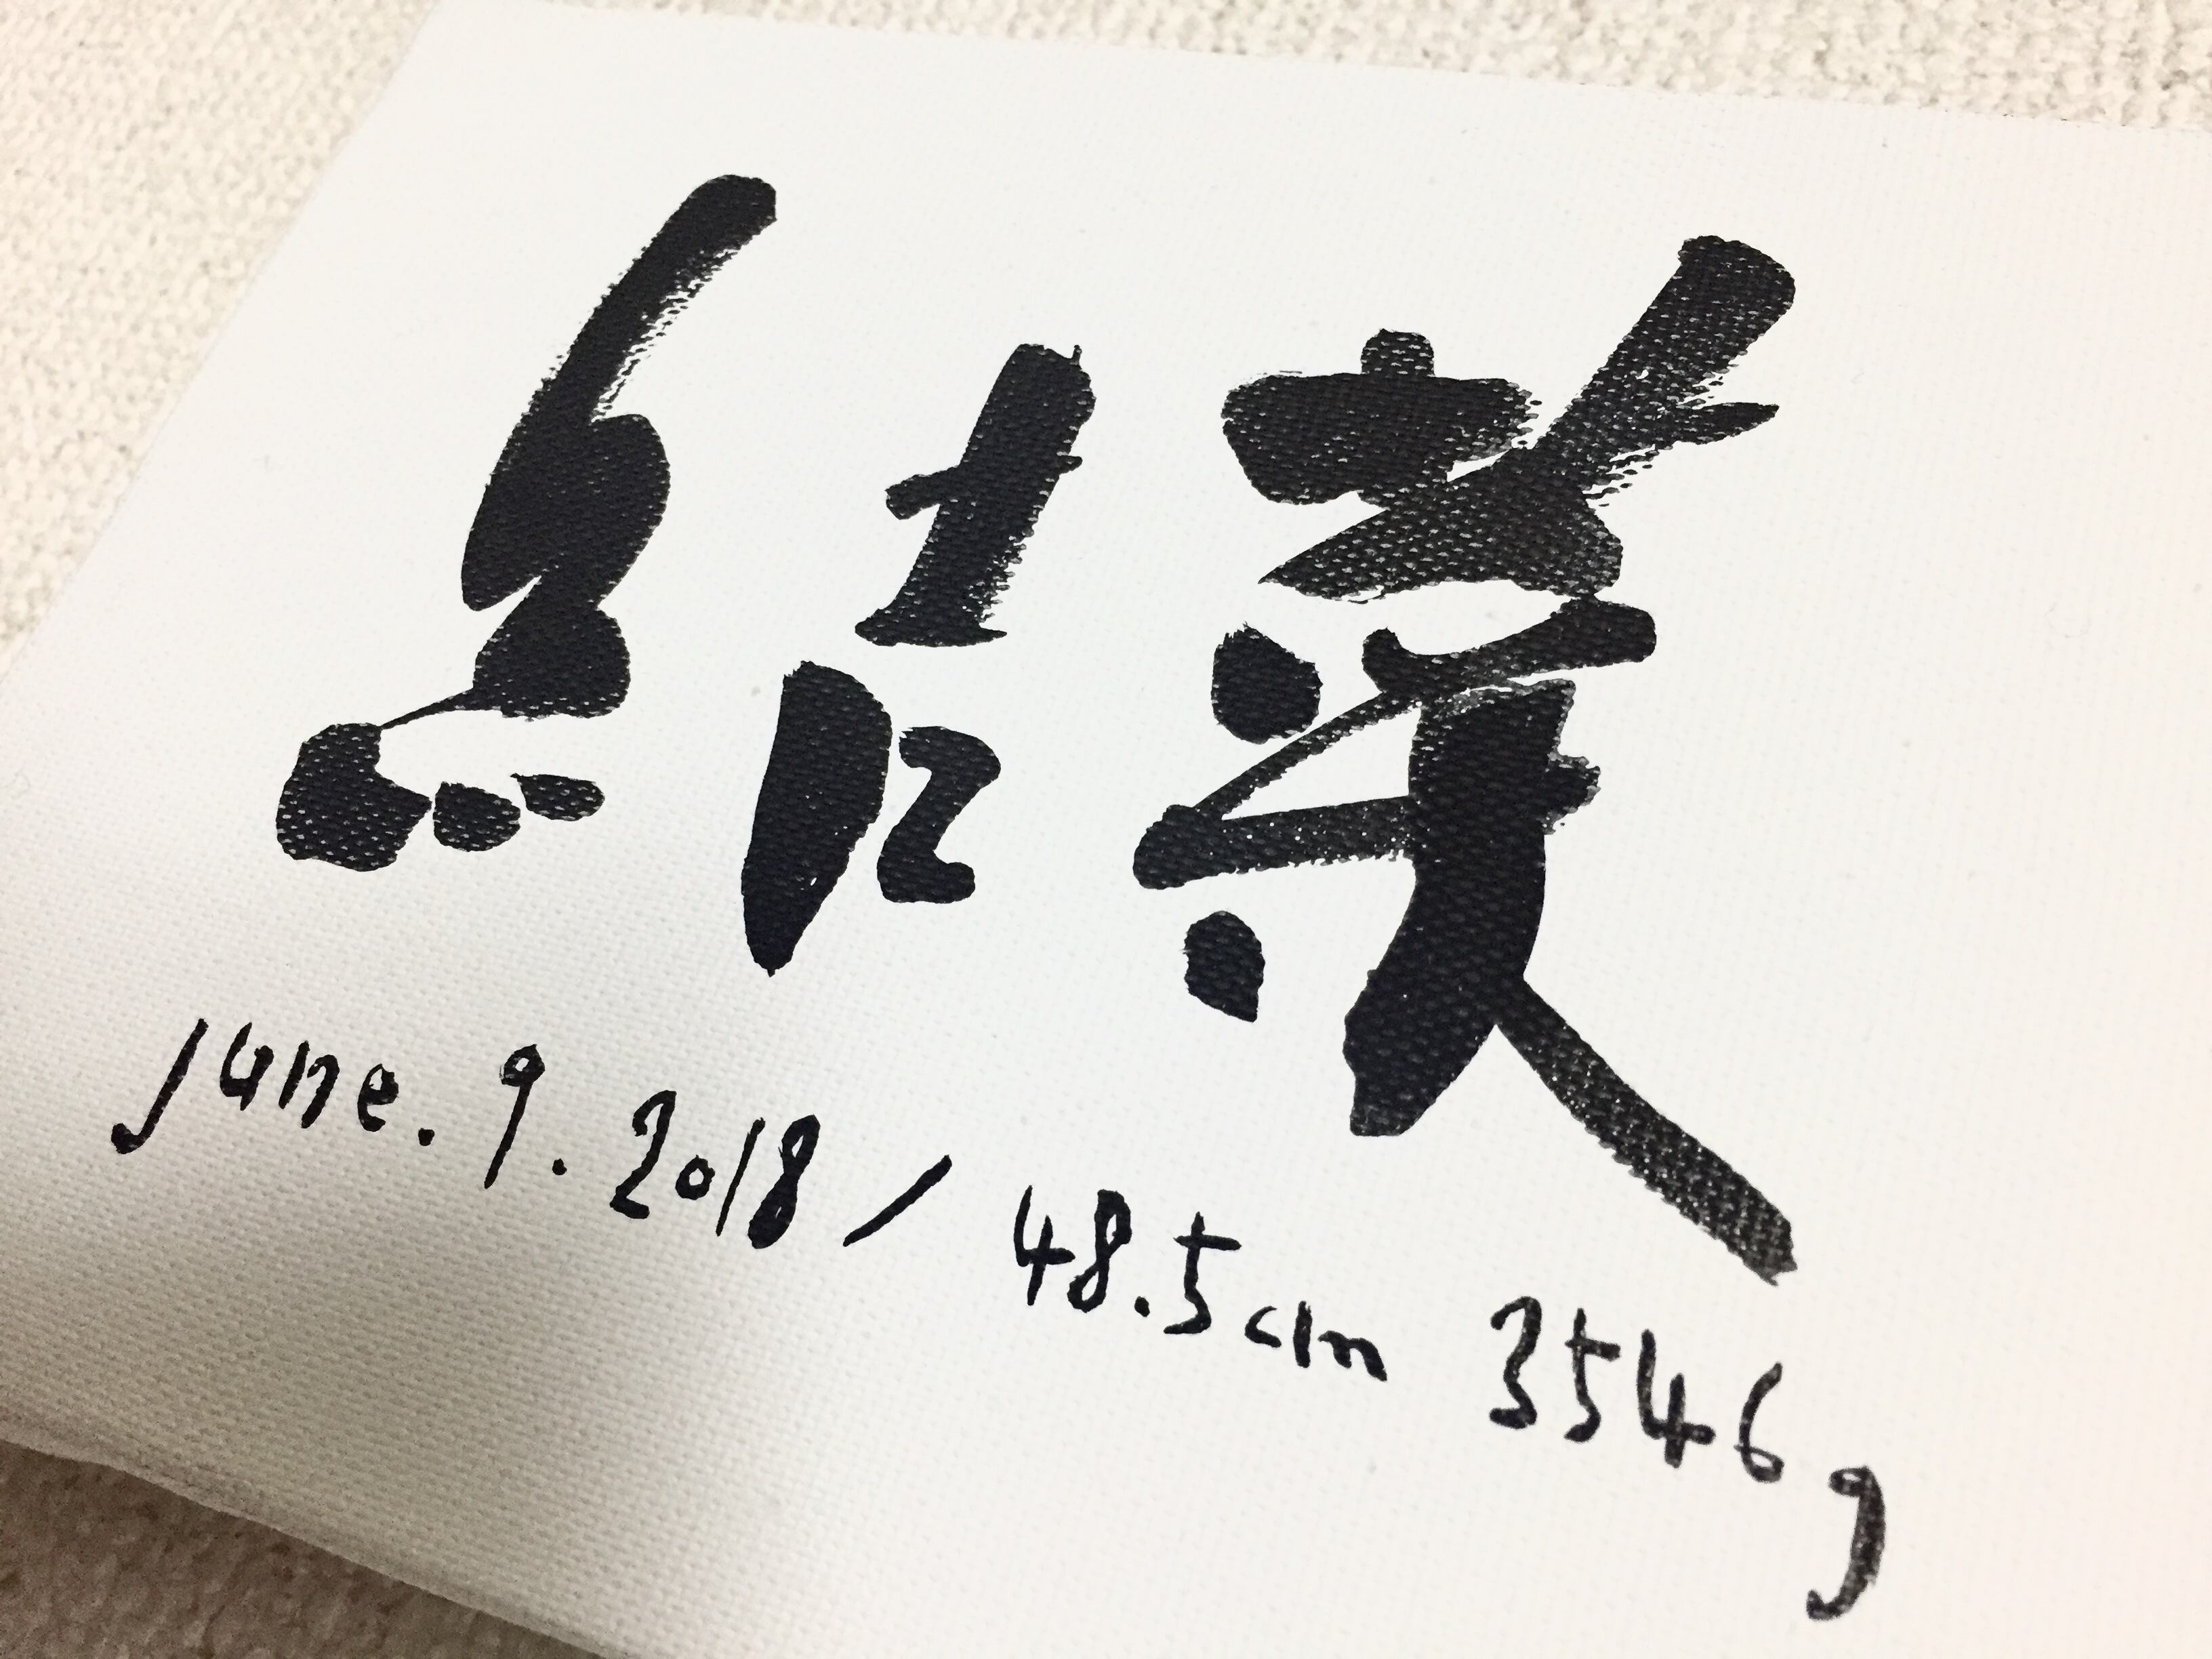 結菜
june.9.2018/ 48.5cm 3546g